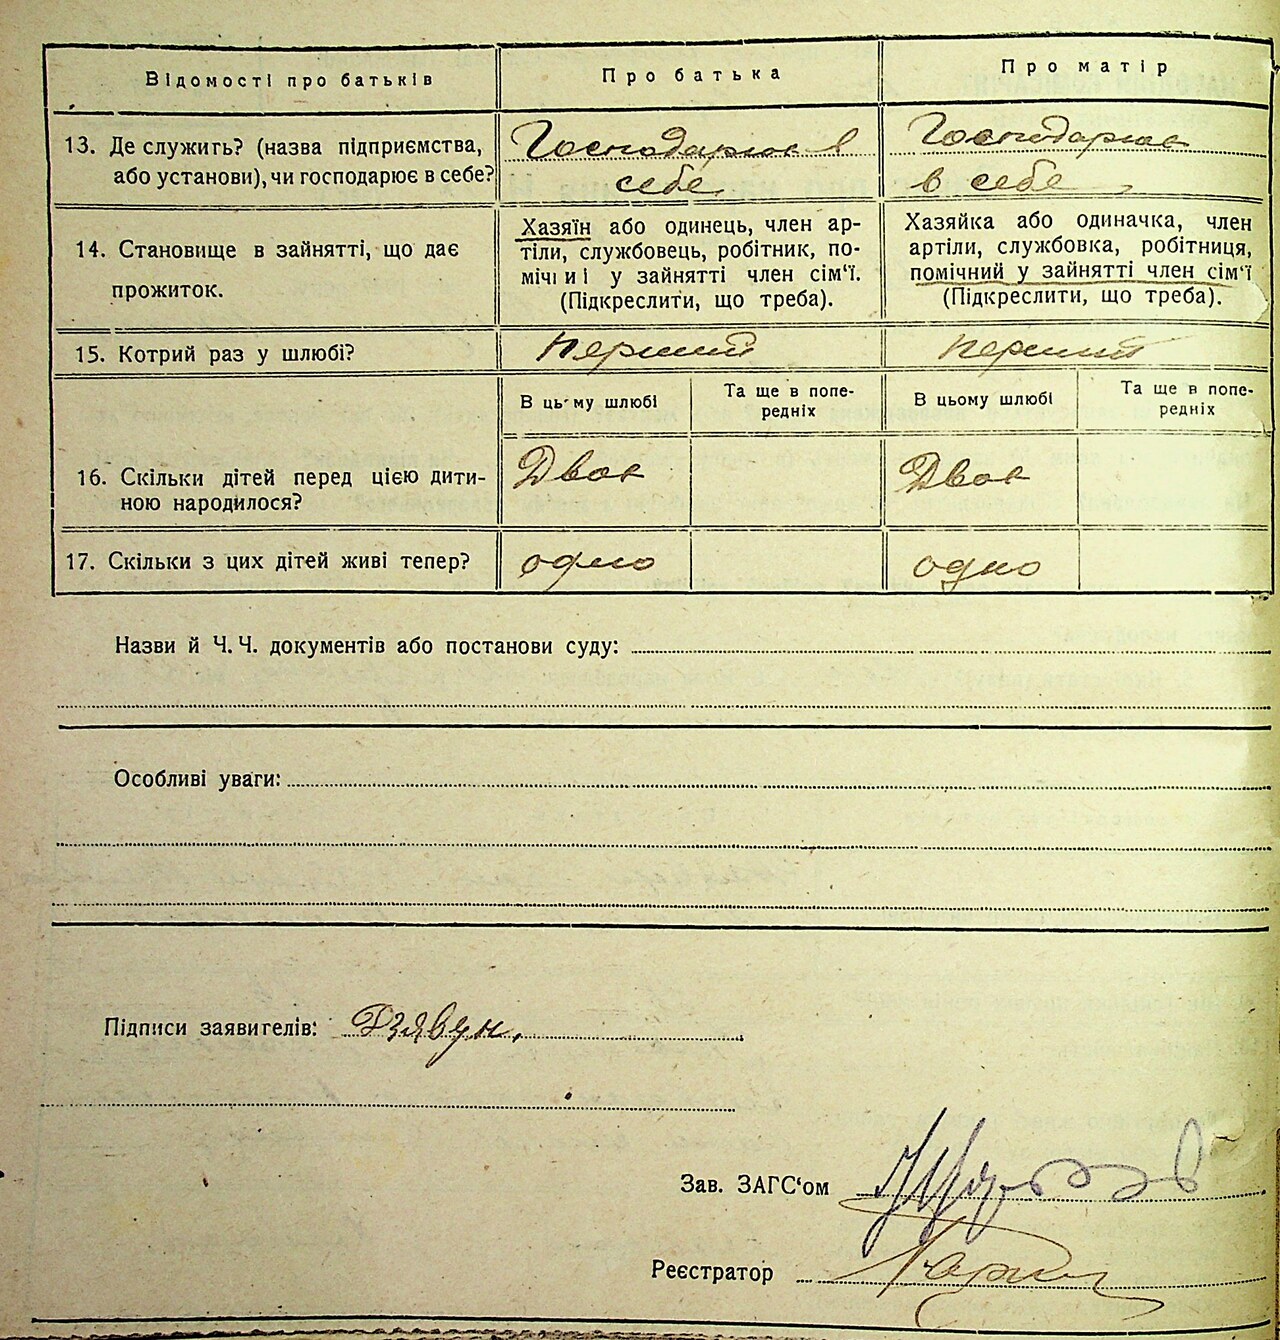 Відомості про батьків
Про батька
Про матір
13. Де служить? (назва підприємства,
або установи), чи господарює в себе?
Господарює в
себе
Господарює
в себе
14. Становище в зайнятті, що дає
прожиток.
Хазяїн або одинець, член ар-
тіли, службовець, робітник, по-
мічниі у зайнятті член сім‘ї.
(Підкреслити, що треба).
Хазяйка або одиначка, член
артіли, службовка, робітниця,
помічний у зайнятті член сім‘ї
(Підкреслити, що треба).
15. Котрий раз у шлюбі?
перший
перший
В цьму шлюбі
Та ще в попе-
редніх
В цьому шлюбі
Та ще в попе-
редніх
16. Скільки дітей перед цією дити-
ною народилося?
Двоє
Двоє
17. Скільки з цих дітей живі тепер?
одно
одно
Назви й Ч. Ч. документів або постанови суду:
Особливі уваги:
Підписи заявителів: Дзявун.
Зав. ЗАГС‘ом
Реєстратор